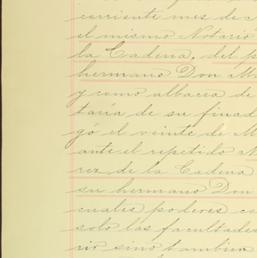 corriente mes de
el mismo Notario
la Cadena, del p
hermano Don M
y como albacea de
taría de su finad
gó el veinte de M
ante el repetido N
rez de la Cadena
su hermano Don
cuales poderes co
solo las facultade
rio sinó tambien